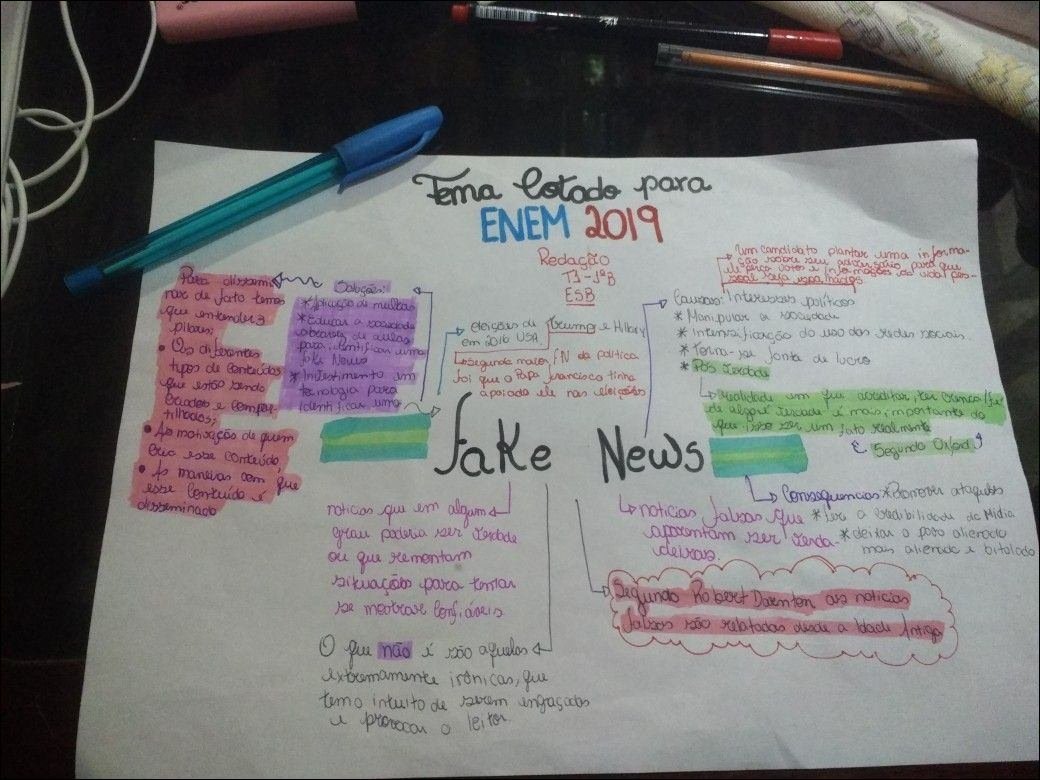 Tema Cotado para
ENEM 2019
Redação
T1-1ºB
ESB
Um candidato plantar uma informa-
ção sobre seu adversário para que
ele perca votos e informações as
sejam espalhadas
Causas: Interesses políticos
* Manipular a sociedade
* Intensificação do uso das redes sociais
* Torna-se fonta de lucro
* Pós Verdade
realidade em que acreditar, ter
de alguma verdade é mais importante do
que isso ser um fato realmente
Segundo Oxford
eleições de
em 2016 USA.
Trump e Hillary
Segundo maior FN da política
foi que o Papa Francisco tinha
apoiado ele nas eleições
Soluções:
* Aplicação de multas
* Educar a sociedade
através de aulas
para identificar uma
fake News
* Investimento em
tecnologia para
identificar uma
Para dissemi
nar de fato temos
que entender 3
pilares:
• Os diferentes
tipos de conteúdos
que estão sendo
criados e compar-
tilhados;
• As motivações de quem
cria esse conteúdo,
• As maneiras com que
esse conteúdo é
disseminado
Fake News
noticias que em algum
grau poderia ser verdade
ou que remontam
situações para tentar
se mostrar confiáveis
O que não é são aquelas
extremamente irônicas, que
tem o intuito de serem engraçadas
e provocar o leitor
noticias falsas que
aparentam ser verda-
deiras.
Consequencias * Promover ataques
* tira a credibilidade da Mídia
* deixar o povo alienado
mais alienado e bitolado
Segundo Robert Darnton as noticias
falsas são relatadas desde a Idade Antiga